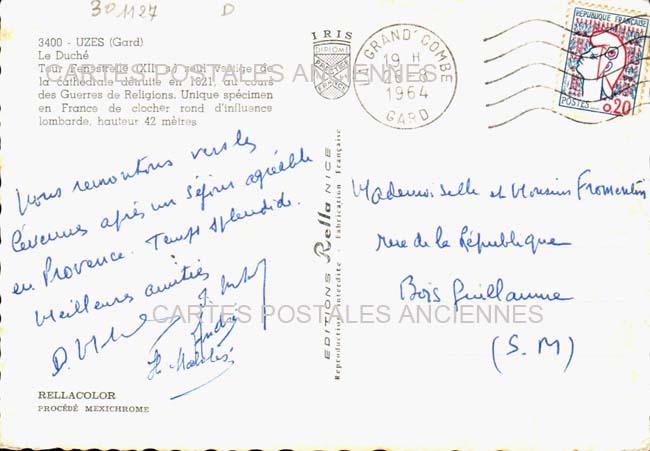 301127 D
3400 - UZES (Gard)
Le Duché
Tour Fenestrelle (XIIe s.) seul vestige de
la cathédrale détruite en 1621, au cours
des Guerres de Religions. Unique spécimen
en France de clocher rond d'influence
lombarde, hauteur 42 mètres
IRIS
DIPLOME
PRESTIGE
FRANCE
GRAND'COMBE
19 H
-8
1964
GARD
REPUBLIQUE FRANÇAISE
POSTES
0,20
CARTES POSTALES ANCIENNES
Nous remontons vers les
Cévennes après un séjour agréable
en Provence. Temps splendide.
Meilleures amitiés
André
EDITIONS Rella NICE
Reproduction interdite - Fabrication Française
Mademoiselle et Monsieur Fromentin
rue de la République
Bois Guillaume
(S. M)
CARTES POSTALES ANCIENNES
RELLACOLOR
PROCÉDÉ MEXICHROME